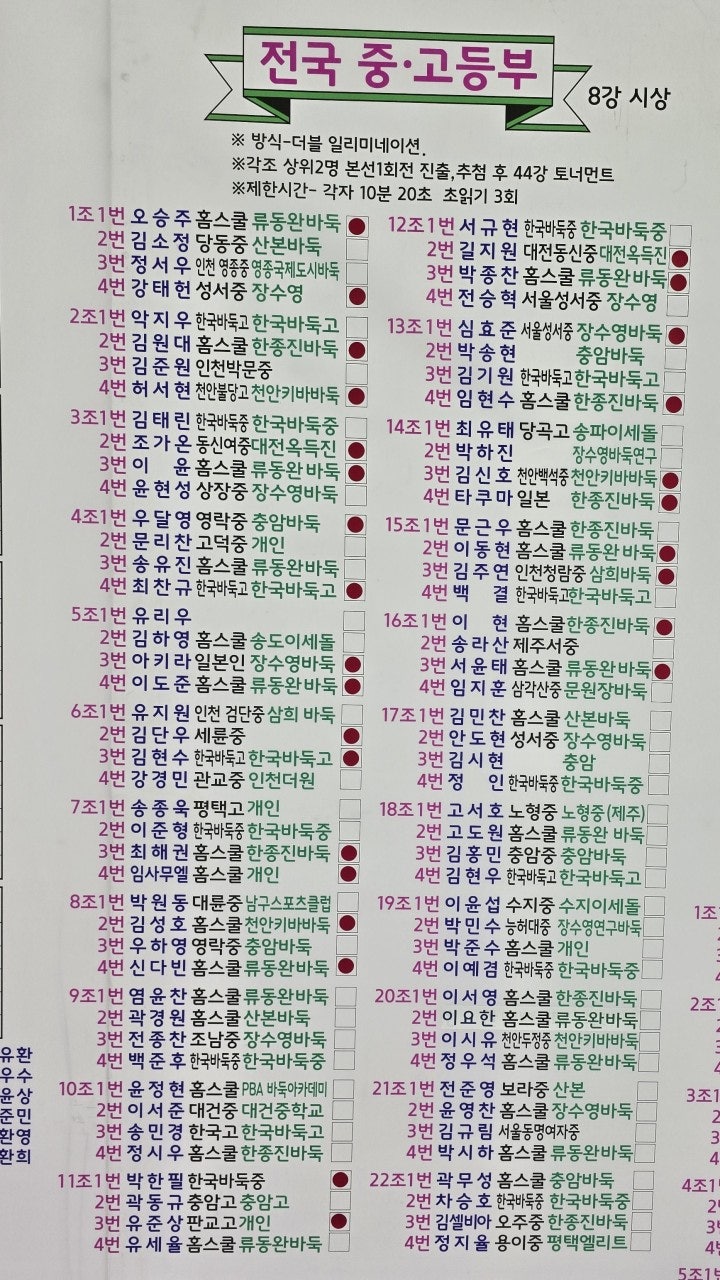 전국 중·고등부
8강 시상
※ 방식-더블 일리미네이션.
※각조 상위2명 본선1회전 진출,추첨 후 44강 토너먼트
※제한시간- 각자 10분 20초 초읽기 3회
1조1번 오승주 홈스쿨 류동완바둑
2번 김소정 당동중 산본바둑
3번 정서우 인천 영종중 영종국제도시바둑
4번 강태헌 성서중 장수영
2조1번 악지우 한국바둑고 한국바둑고
2번 김원대 홈스쿨 한종진바둑
3번 김준원 인천박문중
4번 허서현 천안불당고 천안키바바둑
3조1번 김태린 한국바둑중 한국바둑중
2번 조가온 동신여중 대전옥득진
3번 이 윤 홈스쿨 류동완바둑
4번 윤현성 상장중 장수영바둑
4조1번 우달영 영락중 충암바둑
2번 문리찬 고덕중 개인
3번 송유진 홈스쿨 류동완바둑
4번 최찬규 한국바둑고 한국바둑고
5조1번 유리우
2번 김하영 홈스쿨 송도이세돌
3번 아키라 일본인 장수영바둑
4번 이도준 홈스쿨 류동완바둑
6조1번 유지원 인천 검단중 삼희 바둑
2번 김단우 세륜중
3번 김현수 한국바둑고 한국바둑고
4번 강경민 관교중 인천더원
7조1번 송종욱 평택고 개인
2번 이준형 한국바둑중 한국바둑중
3번 최해권 홈스쿨 한종진바둑
4번 임사무엘 홈스쿨 개인
8조1번 박원동 대륜중 남구스포츠클럽
2번 김성호 홈스쿨 천안키바바둑
3번 우하영 영락중 충암바둑
4번 신다빈 홈스쿨 류동완바둑
9조1번 염윤찬 홈스쿨 류동완바둑
2번 곽경원 홈스쿨 산본바둑
3번 전종찬 조남중 장수영바둑
4번 백준후 한국바둑중 한국바둑중
10조1번 윤정현 홈스쿨 PBA 바둑아카데미
2번 이서준 대건중 대건중학교
3번 송민경 한국고 한국바둑고
4번 정시우 홈스쿨 한종진바둑
11조1번 박한필 한국바둑중
2번 곽동규 충암고 충암고
3번 유준상 판교고 개인
4번 유세율 홈스쿨 류동완바둑
12조1번 서규현 한국바둑중 한국바둑중
2번 길지원 대전동신중 대전옥득진
3번 박종찬 홈스쿨 류동완바둑
4번 전승혁 서울성서중 장수영
13조1번 심효준 서울성서중 장수영바둑
2번 박송현 충암바둑
3번 김기원 한국바둑고 한국바둑고
4번 임현수 홈스쿨 한종진바둑
14조1번 최유태 당곡고 송파이세돌
2번 박하진 장수영바둑연구
3번 김신호 천안백석중 천안키바바둑
4번 타쿠마 일본 한종진바둑
15조1번 문근우 홈스쿨 한종진바둑
2번 이동현 홈스쿨 류동완바둑
3번 김주연 인천청람중 삼희바둑
4번 백 결 한국바둑고 한국바둑고
16조1번 이 현 홈스쿨 한종진바둑
2번 송라산 제주서중
3번 서윤태 홈스쿨 류동완바둑
4번 임지훈 삼각산중 문원장바둑
17조1번 김민찬 홈스쿨 산본바둑
2번 안도현 성서중 장수영바둑
3번 김시현 충암
4번 정 인 한국바둑중 한국바둑중
18조1번 고서호 노형중 노형중(제주)
2번 고도원 홈스쿨 류동완 바둑
3번 김홍민 충암중 충암바둑
4번 김현우 한국바둑고 한국바둑고
19조1번 이윤섭 수지중 수지이세돌
2번 박민수 능허대중 장수영연구바둑
3번 박준수 홈스쿨 개인
4번 이예겸 한국바둑중 한국바둑중
20조1번 이서영 홈스쿨 한종진바둑
2번 이요한 홈스쿨 류동완바둑
3번 이시유 천안두정중 천안키바바둑
4번 정우석 홈스쿨 류동완바둑
21조1번 전준영 보라중 산본
2번 윤영찬 홈스쿨 장수영바둑
3번 김규림 서울동명여자중
4번 박시하 홈스쿨 류동완바둑
22조1번 곽무성 홈스쿨 충암바둑
2번 차승호 한국바둑중 한국바둑중
3번 김셀비아 오주중 한종진바둑
4번 정지율 용이중 평택엘리트
유환
우수
윤상
준민
환영
환희
1조
2조
3조1
4조1
5조1번